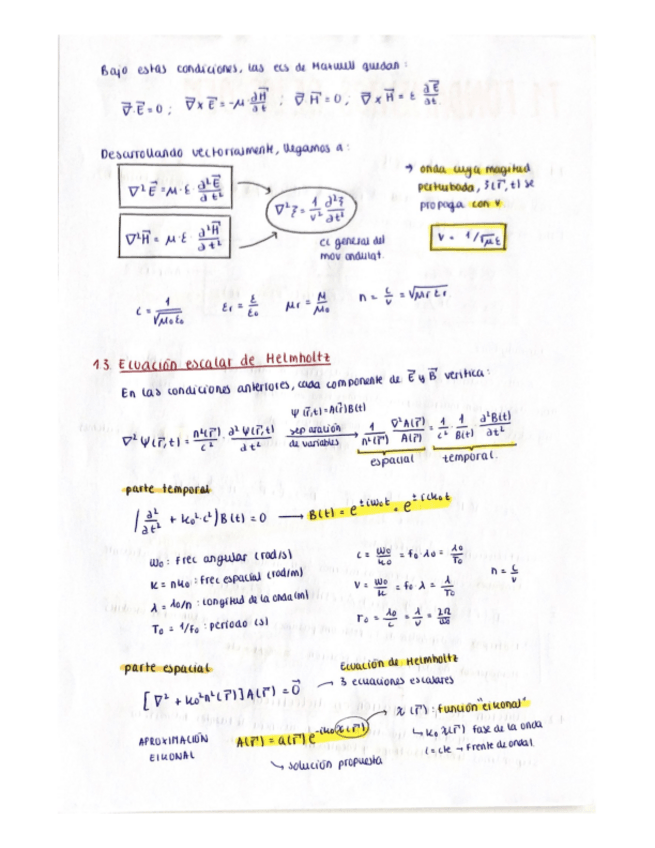 Bajo estas condiciones, las ecs de Maxwell quedan:
∇·E⃗ = 0 ; ∇⃗ x E⃗ = -μ · ∂H⃗/∂t ; ∇⃗ H⃗ = 0 ; ∇⃗ x H⃗ = ε ∂E⃗/∂t
Desarrollando vectorialmente, llegamos a:
∇²E⃗ = μ·ε · ∂²E⃗/∂t²
∇²H⃗ = μ·ε · ∂²H⃗/∂t²
∇²ξ⃗ = 1/v² ∂²ξ/∂t²
ec general del
mov ondulat.
→ onda cuya magitud
perturbada, ξ(r⃗,t) se
propaga con v
v = 1/√με
c = 1/√μ₀ε₀ εr = ε/ε₀ μr = μ/μ₀ n = c/v = √μr εr
1.3. Ecuación escalar de Helmholtz
En las condiciones anteriores, cada componente de E⃗ y B⃗ verifica:
∇²Ψ(r⃗,t) = n²(r⃗)/c² · ∂²Ψ(r⃗,t)/∂t²
Ψ(r⃗,t)=A(r⃗)B(t)
separación
de variables
→ 1/n²(r⃗) · ∇²A(r⃗)/A(r⃗) = 1/c² · 1/B(t) · ∂²B(t)/∂t²
espacial temporal.
parte temporal
(∂²/∂t² + k₀²·c²)B(t) = 0 → B(t) = e^±iω₀t = e^±ick₀t
ω₀: frec angular (rad/s)
k = nk₀ : frec espacial (rad/m)
λ = λ₀/n : longitud de la onda (m)
T₀ = 1/f₀ : período (s)
c = ω₀/k₀ = f₀·λ₀ = λ₀/T₀
v = ω₀/k = f₀·λ = λ/T₀
T₀ = λ₀/c = λ/v = 2π/ω₀
n = c/v
parte espacial
[∇² + k₀²n²(r⃗)]A(r⃗) = 0⃗
Ecuación de Helmholtz
→ 3 ecuaciones escalares
APROXIMACIÓN
EIKONAL
A(r⃗) = a(r⃗) e^-ik₀χ(r⃗)
→ solución propuesta
→ χ(r⃗) : función "eikonal"
↳ k₀ χ(r⃗) fase de la onda
(= cte → Frente de onda)